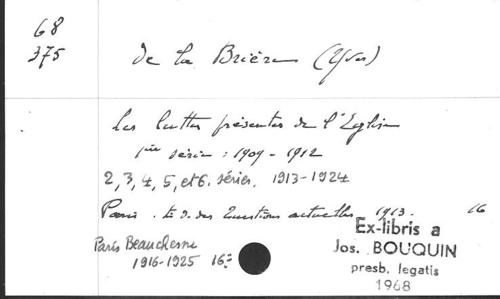 68
375
de la Brière (Yves)
Les luttes présentes de l'Eglise
1ère série : 1909-1912
2, 3, 4, 5, et 6. séries. 1913-1924
Paris. des Questions actuelles 1913. 16
Paris Beauchesne
1916-1925 16º
Ex-libris a
Jos. BOUQUIN
presb. legatis
1968